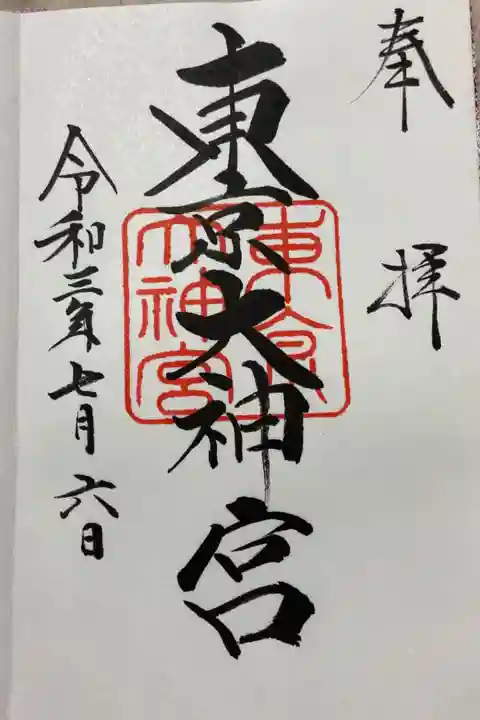 奉拝
東京大神宮
東京大神宮
令和三年七月六日